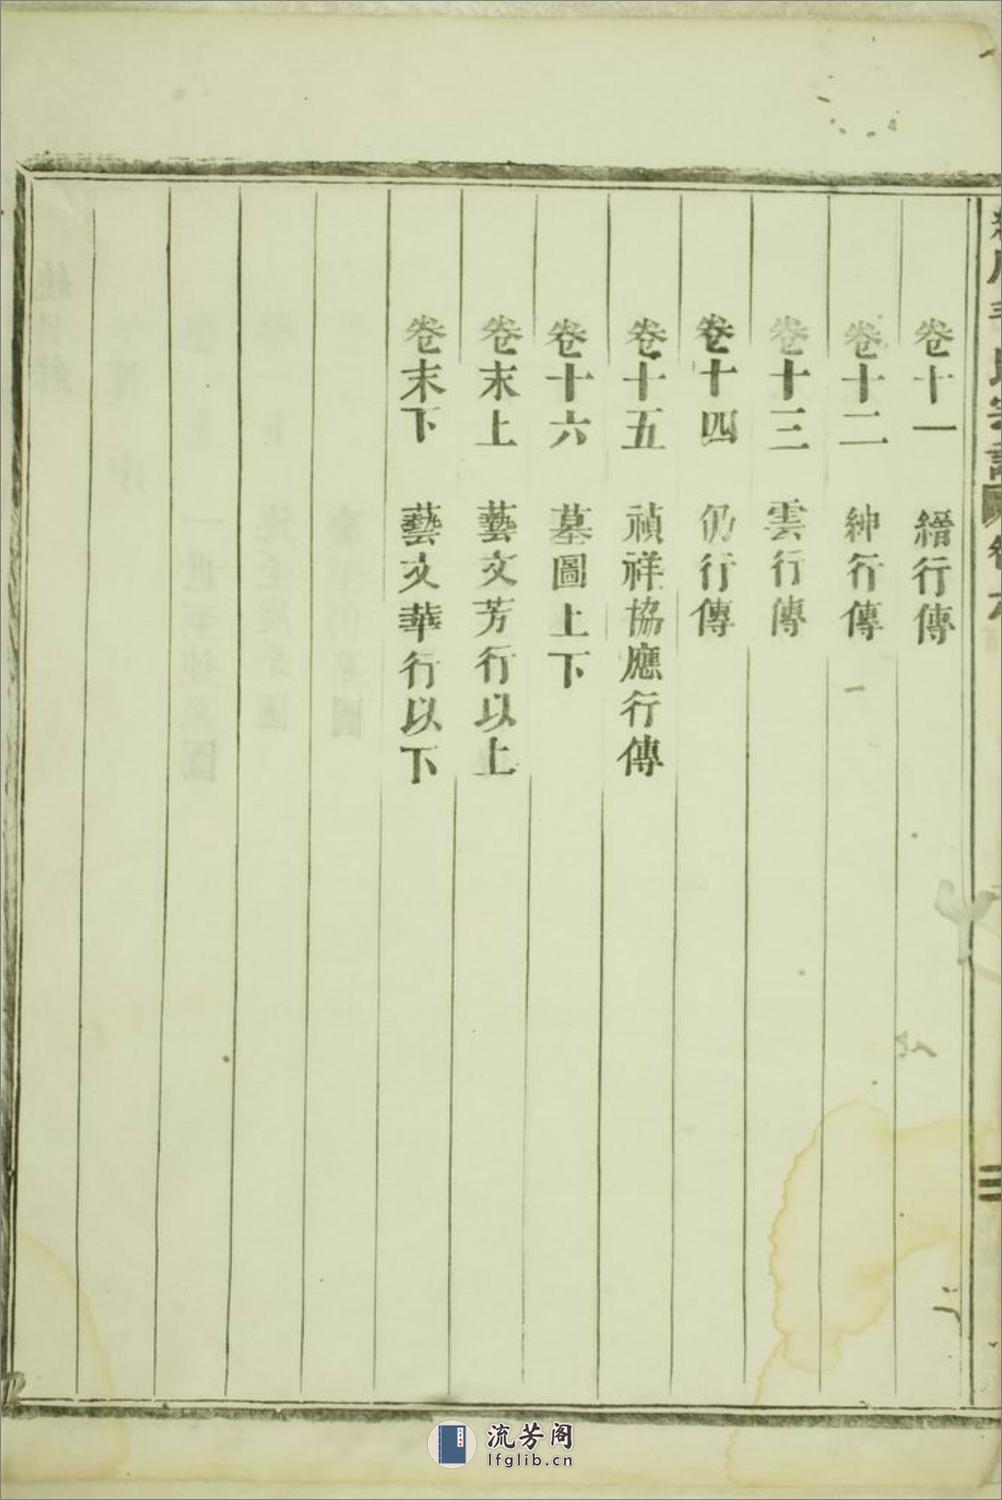 卷十一　縉行傳
卷十二　紳行傳
卷十三　雲行傳
卷十四　仍行傳
卷十五　禎祥協應行傳
卷十六　墓圖上下
卷末上　藝文芳行以上
卷末下　藝文華行以下
三
流芳阁
lfglib.cn